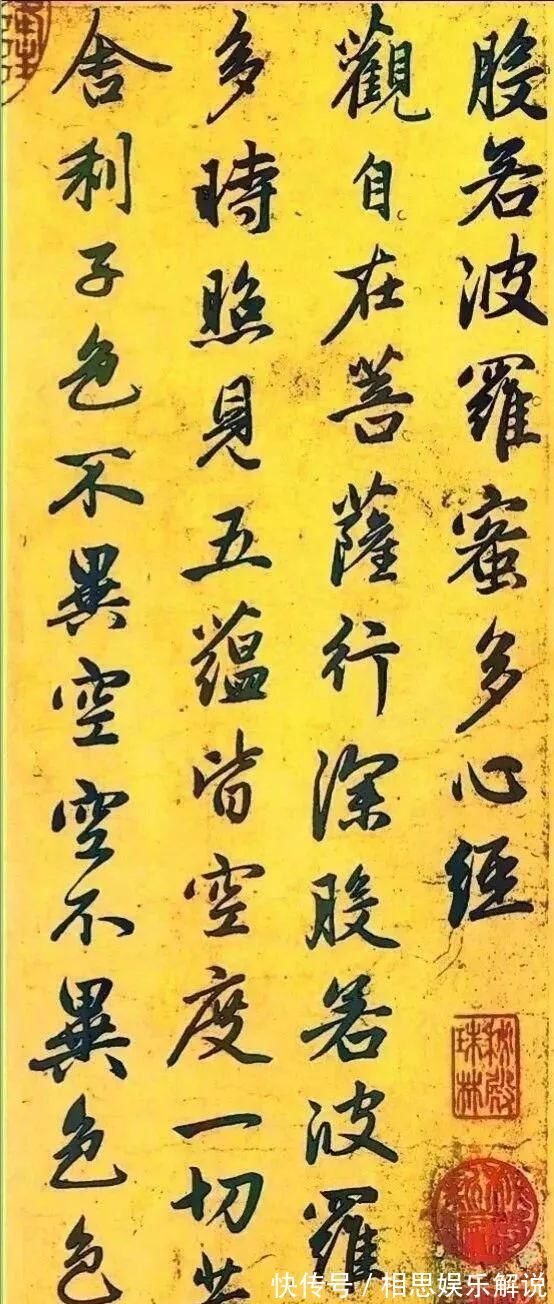 般若波羅蜜多心經
觀自在菩薩行深般若波羅
多時照見五蘊皆空度一切苦
舍利子色不異空空不異色色
秘殿珠林
快传号 / 相思娱乐解说